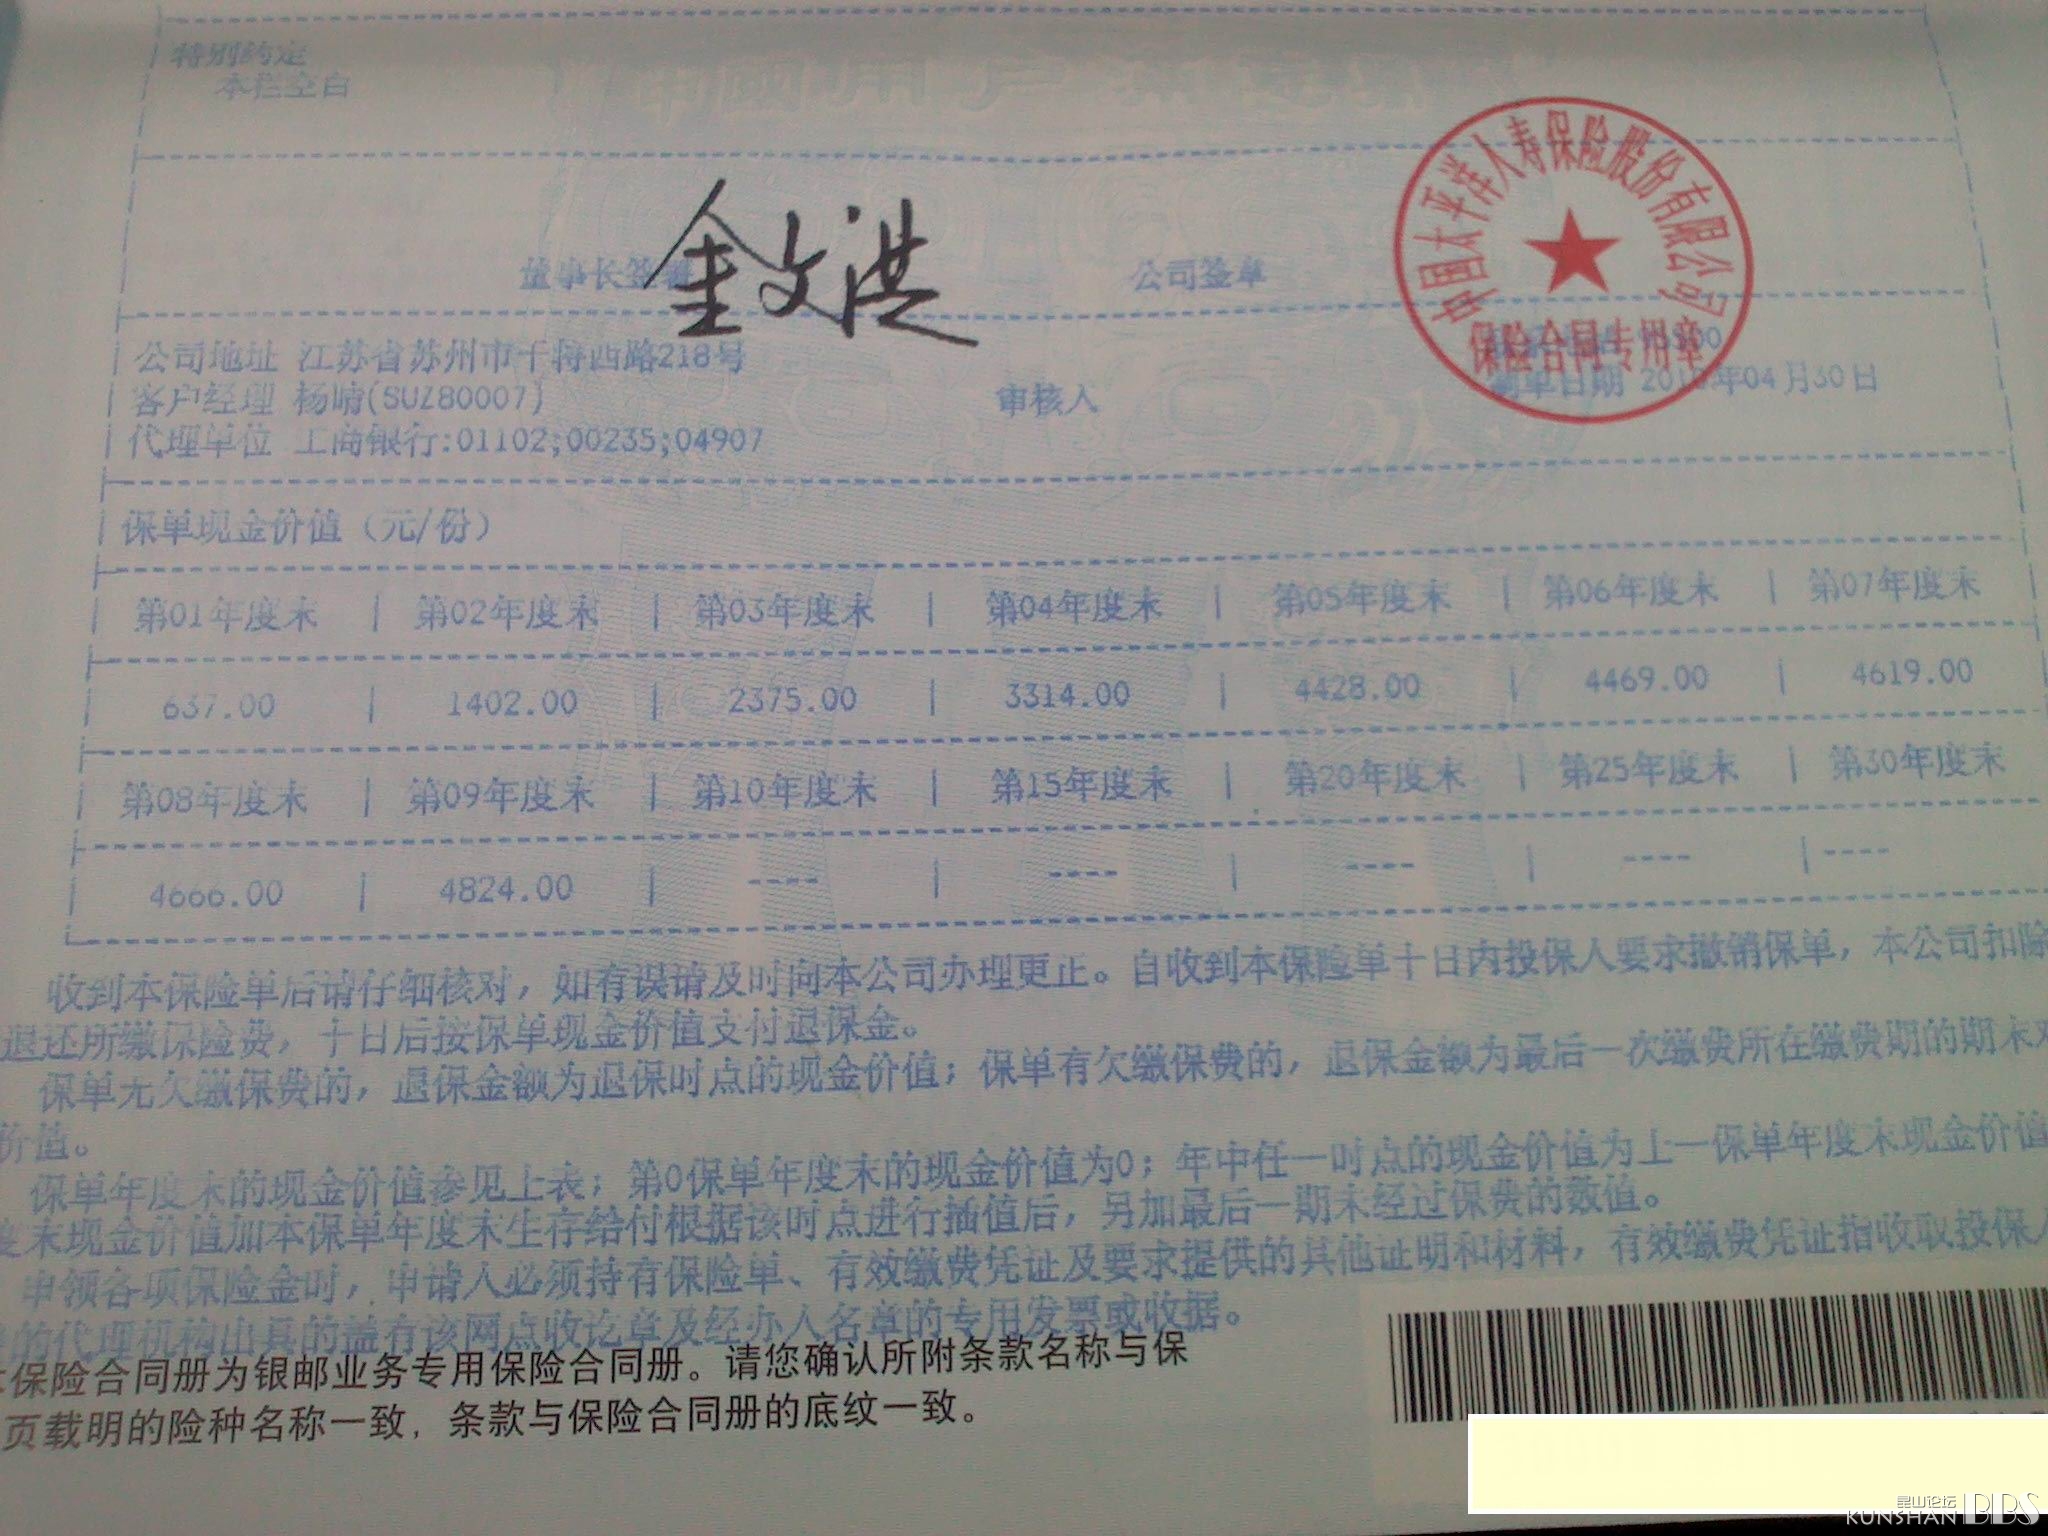 特别约定
本栏空白
董事长签署 金文洪 公司签章
中国太平洋人寿保险股份有限公司
保险合同专用章
公司地址 江苏省苏州市干将西路218号
客户经理 杨晴(SUZ80007) 审核人 制单日期 2010年04月30日
代理单位 工商银行:01102;00235;04907
保单现金价值（元/份）
第01年度末 | 第02年度末 | 第03年度末 | 第04年度末 | 第05年度末 | 第06年度末 | 第07年度末
637.00 | 1402.00 | 2375.00 | 3314.00 | 4428.00 | 4469.00 | 4619.00
第08年度末 | 第09年度末 | 第10年度末 | 第15年度末 | 第20年度末 | 第25年度末 | 第30年度末
4666.00 | 4824.00 | ---- | ---- | ---- | ---- | ----
收到本保险单后请仔细核对，如有误请及时向本公司办理更正。自收到本保险单十日内投保人要求撤销保单，本公司扣除
退还所缴保险费，十日后按保单现金价值支付退保金。
保单无欠缴保费的，退保金额为退保时点的现金价值；保单有欠缴保费的，退保金额为最后一次缴费所在缴费期的期末
价值。
保单年度末的现金价值参见上表；第0保单年度末的现金价值为0；年中任一时点的现金价值为上一保单年度末现金价值
度末现金价值加本保单年度末生存给付根据该时点进行插值后，另加最后一期未经过保费的数值。
申领各项保险金时，申请人必须持有保险单、有效缴费凭证及要求提供的其他证明和材料，有效缴费凭证指收取投保人
的代理机构出具的盖有该网点收讫章及经办人名章的专用发票或收据。
保险合同册为银邮业务专用保险合同册。请您确认所附条款名称与保
页载明的险种名称一致，条款与保险合同册的底纹一致。
昆山论坛
KUNSHAN BBS